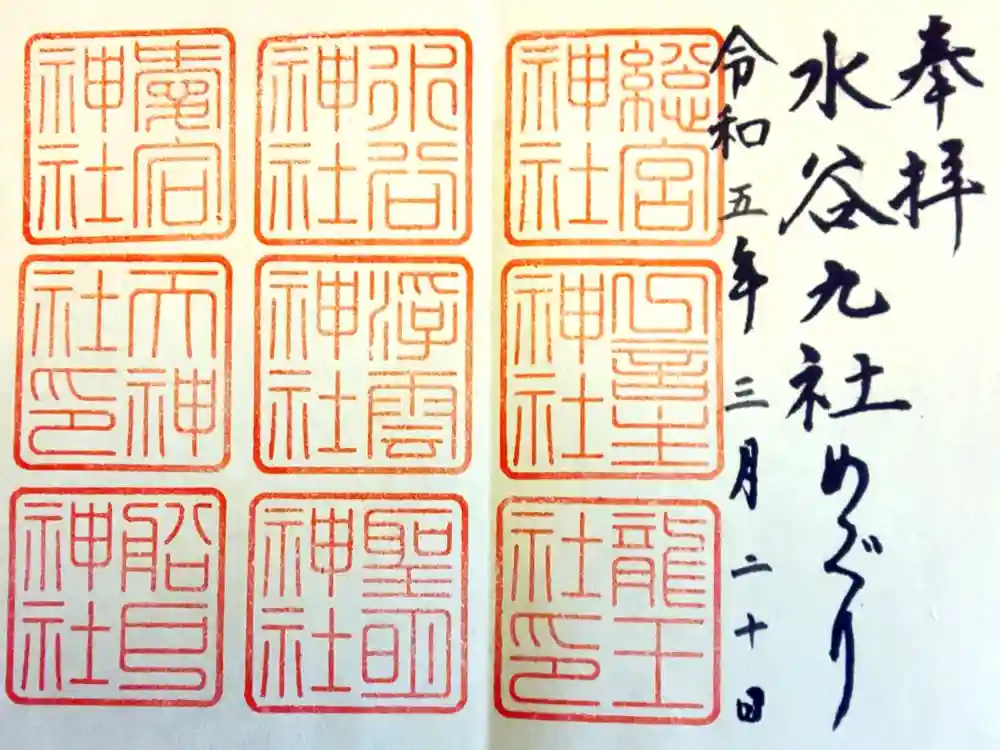 奉拝
水谷九社めぐり
令和五年三月二十日
総宮神社
一言主神社
龍王社印
水谷神社
浮雲神社
聖明神社
愛宕神社
天神社印
船戸神社